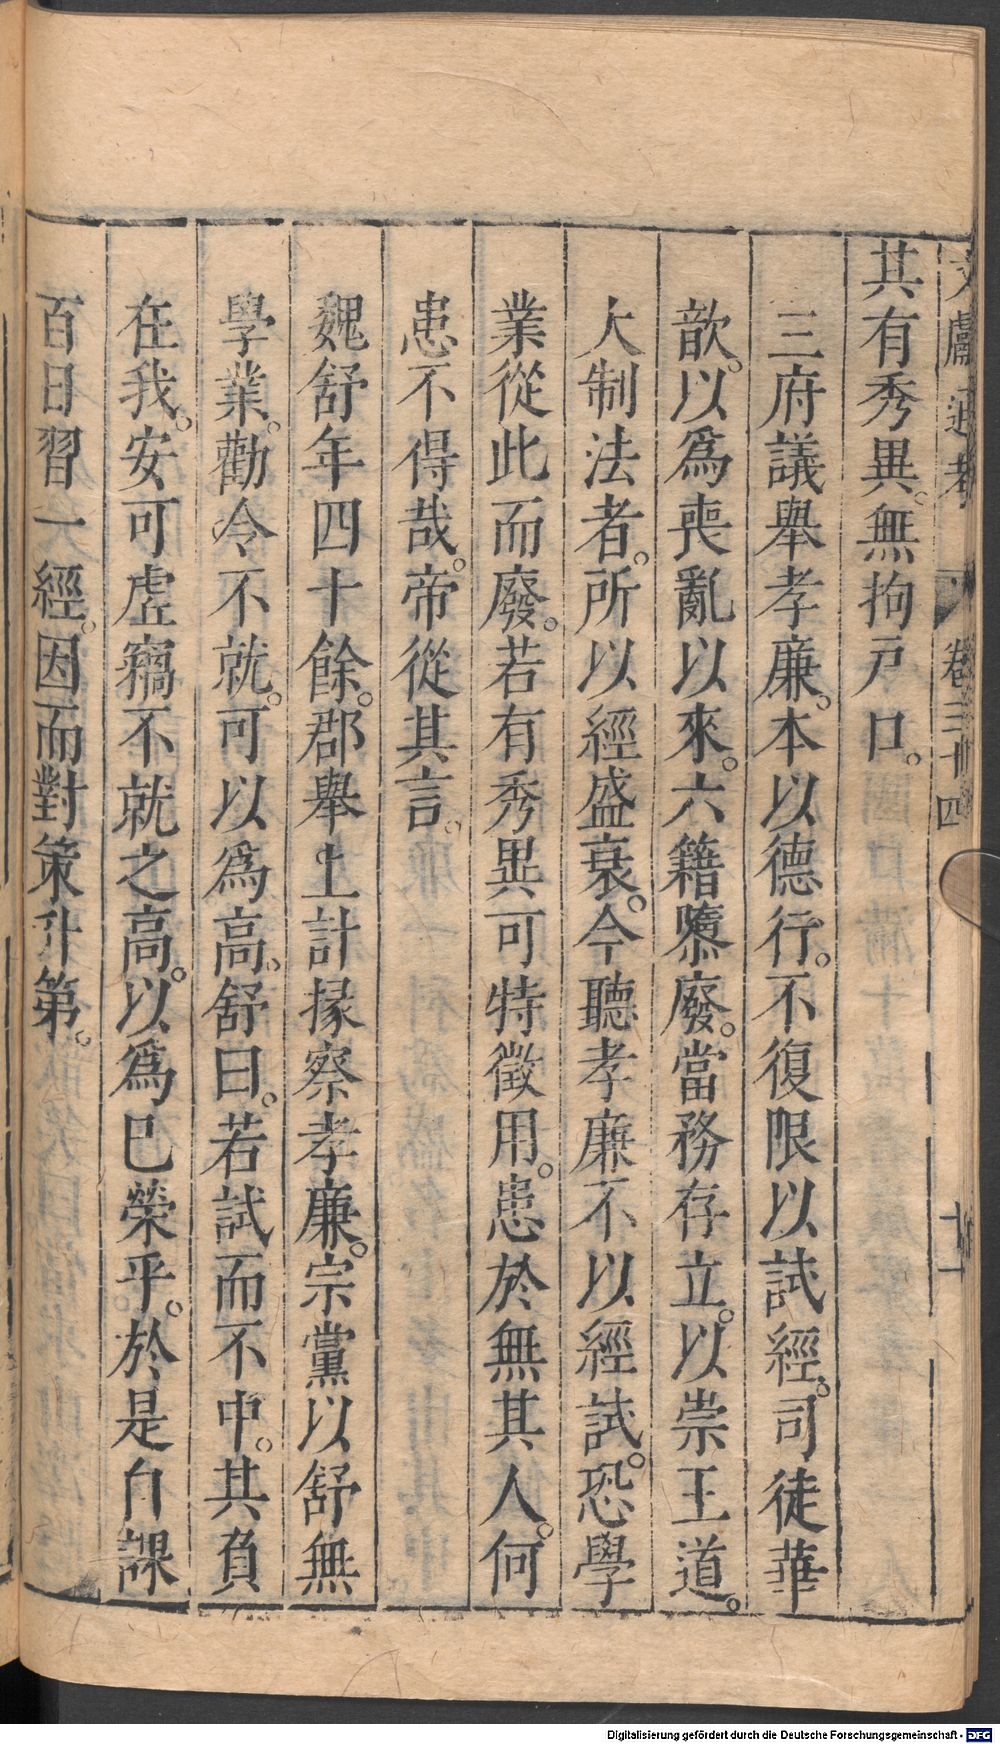 文獻通考 卷三十四 十一
其有秀異。無拘戸口。
三府議舉孝廉。本以德行。不復限以試經。司徒華
歆。以爲喪亂以來。六籍墮廢。當務存立。以崇王道。
大制法者。所以經盛衰。今聽孝廉不以經試。恐學
業從此而廢。若有秀異可特徵用。患於無其人。何
患不得哉。帝從其言。
魏舒年四十餘。郡舉上計掾察孝廉。宗黨以舒無
學業。勸令不就。可以爲高。舒曰。若試而不中。其負
在我。安可虛竊不就之高。以爲巳榮乎。於是自課
百日習一經。因而對策升第。
Digitalisierung gefördert durch die Deutsche Forschungsgemeinschaft - DFG